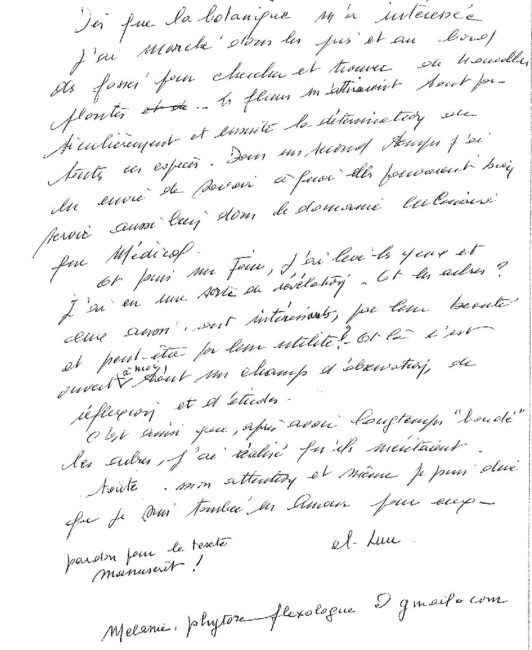 Dès que la botanique m'a intéressée
j'ai marché dans les prés et au bord
des fossés pour chercher et trouver de nouvelles
plantes. les fleurs m'attiraient tout par-
ticulièrement et ensuite la détermination de
toutes ces espèces. Dans un second temps j'ai
eu envie de savoir à quoi elles pouvaient bien
servir aussi bien dans le domaine culinaire
que Médical.
Et puis un jour, j'ai levé les yeux et
j'ai eu une sorte de révélation. Et les arbres ?
eux aussi sont intéressants, par leur beauté
et peut-être par leur utilité ? Et là c'est
ouvert à moi tout un champs d'observation, de
réflexion et d'études.
C'est ainsi que, après avoir longtemps "boudé"
les arbres, j'ai réalisé qu'ils méritaient
toute mon attention et même je puis dire
que je suis tombée en amour pour eux -
pardon pour le texte
manuscrit !
Melanie.phytoreflexologue @ gmail.com